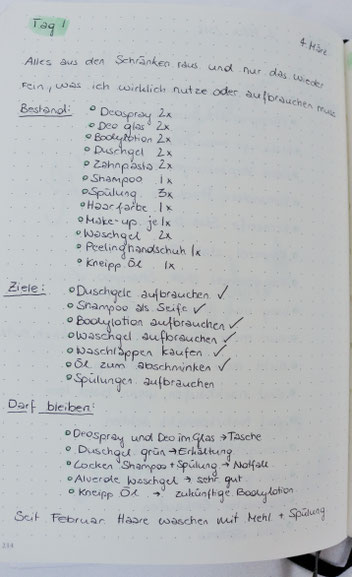 Tag 1
4. März
Alles aus den Schränken raus und nur das wieder
rein, was ich wirklich nutze oder aufbrauchen muss
Bestand:
• Deospray 2x
• Deo glas 2x
• Bodylotion 2x
• Duschgel 2x
• Zahnpasta 2x
• Shampoo 1x
• Spülung 3x
• Haarfarbe 1x
• Make-up je 1x
• Waschgel 2x
• Peelinghandschuh 1x
• Kneipp Öl 1x
Ziele:
• Duschgele aufbrauchen ✓
• Shampoo als Seife ✓
• Bodylotion aufbrauchen ✓
• Waschgel aufbrauchen ✓
• Waschlappen kaufen ✓
• Öl zum abschminken ✓
• Spülungen aufbrauchen
Darf bleiben:
• Deospray und Deo im Glas → Tasche
• Duschgel grün → Erkältung
• Locken Shampoo + Spülung → Notfall
• Alverde Waschgel → sehr gut
• Kneipp Öl → zukünftige Bodylotion
Seit Februar Haare waschen mit Mehl + Spülung
214